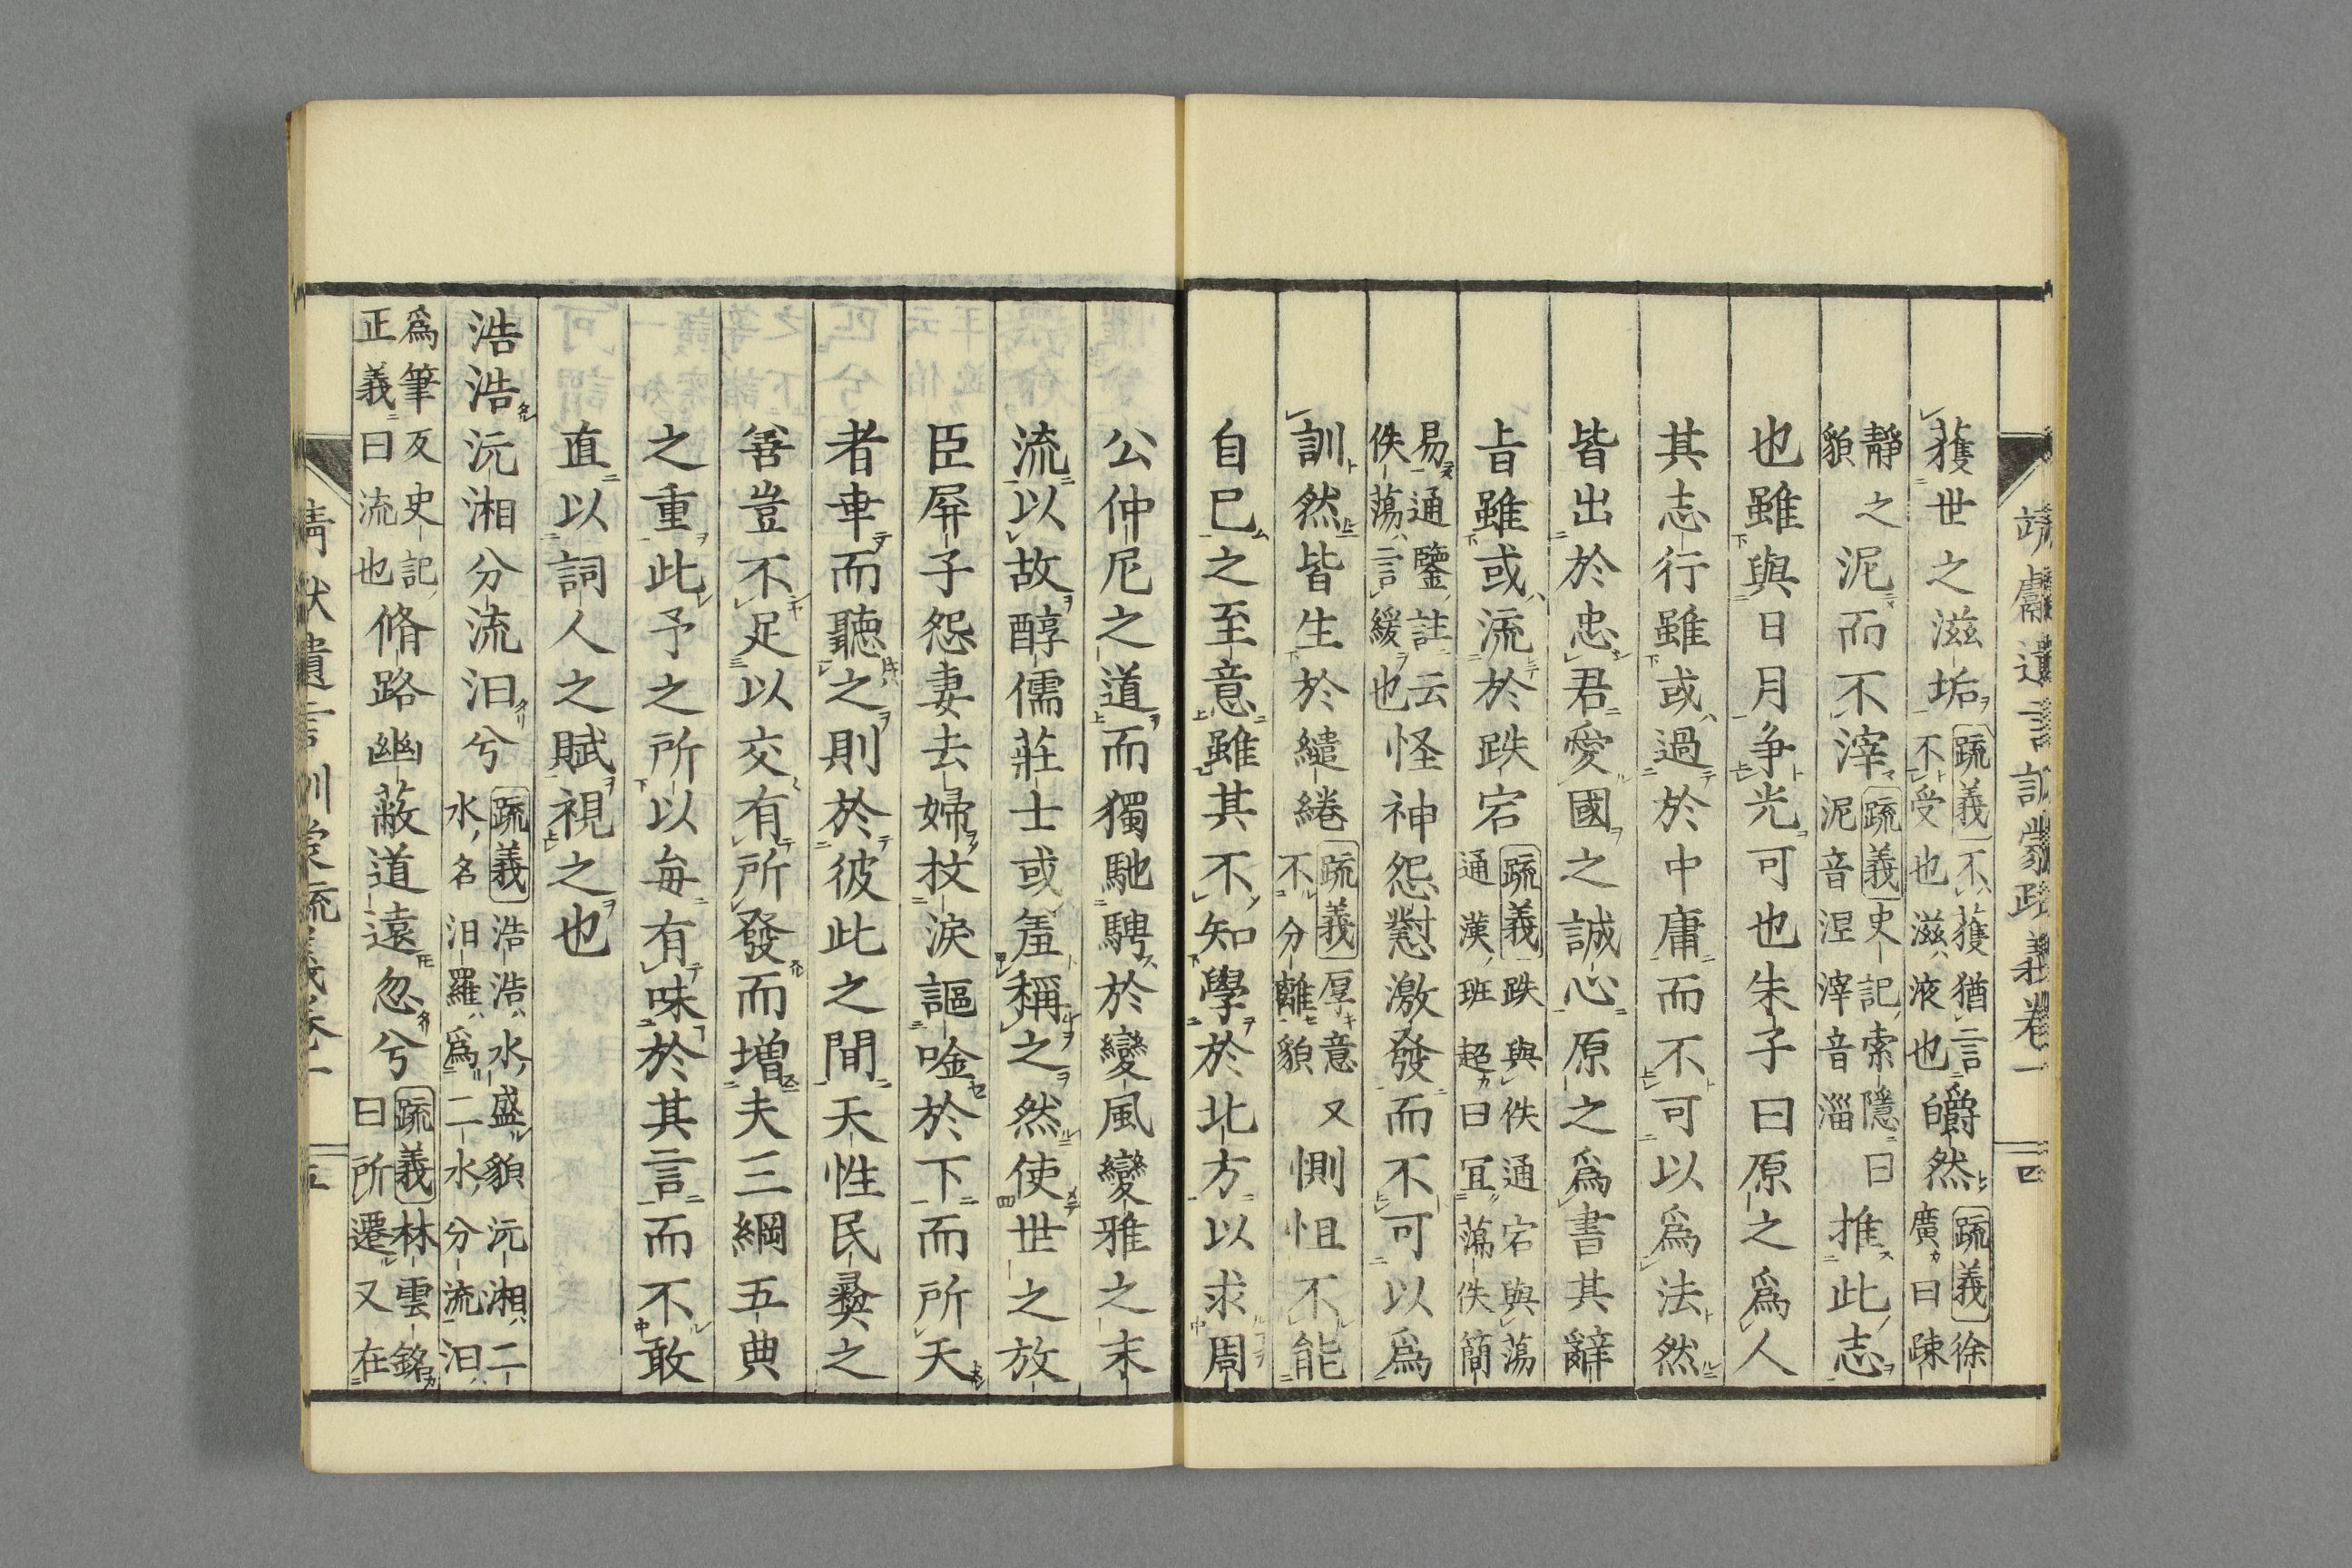 靖獻遺言訓蒙疏義卷一 四
獲世之滋垢疏義不獲猶言不受也滋液也皭然疏義徐廣曰疎
靜之貌泥而不滓疏義史記索隱曰泥音涅滓音淄推此志
也雖與日月争光可也朱子曰原之爲人
其志行雖或過於中庸而不可以爲法然
皆出於忠君愛國之誠心原之爲書其辭
旨雖或流於跌宕疏義跌與佚通宕與蕩通漢班超曰冝蕩佚簡
易通鑒註云佚蕩言緩也怪神怨懟激發而不可以爲
訓然皆生於繾綣疏義厚意又不分離貌惻怛不能
自已之至意雖其不知學於北方以求周
公仲尼之道而獨馳騁於變風變雅之末
流以故醇儒莊士或羞稱之然使世之放
臣屏子怨妻去婦抆淚謳唫於下而所天
者幸而聽之則於彼此之間天性民彝之
善豈不足以交有所發而増夫三綱五典
之重此予之所以毎有味於其言而不敢
直以詞人之賦視之也
浩浩沅湘分流汨兮疏義浩浩水盛貌沅湘二水名汨羅爲二水分流汨
爲筆反史記正義曰流也脩路幽蔽道遠忽兮疏義林雲銘曰所遷又在
靖獻遺言訓蒙疏義卷一 五